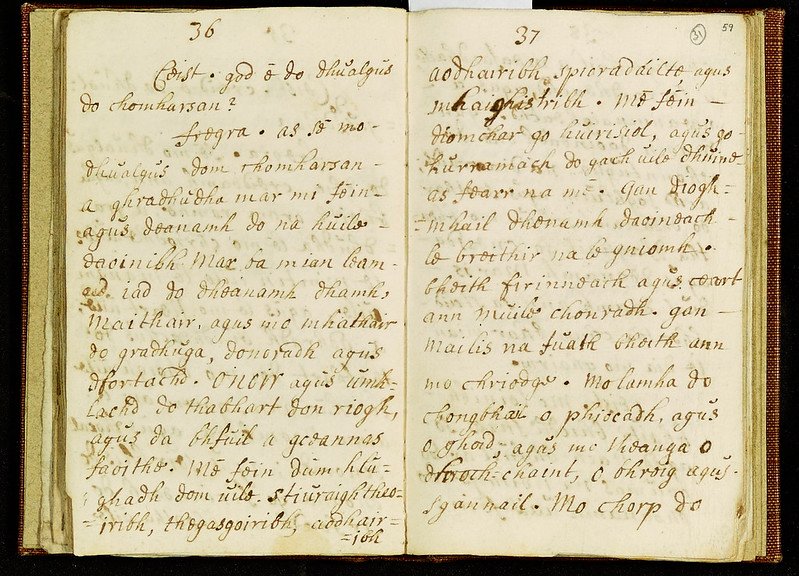 36
Ceist. god é do dhualgus
do chomharsan?
fregra. as sé mo-
dhualgus dom chomharsan-
a ghradhudha mar mi féin-
agus deanamh do na huile-
daoinibh mar ba mian leam-
iad do dheanamh dhamh,
Maithair, agus mo mhathair
do gradhuga, donoradh agus
dfortachd. onoir agus umh=
lachd do thabhart don riogh,
agus da bhfuil a gceannas
faoithe. Mé féin dumhlu-
ghadh dom uile. stiuraightheo-
=iribh, thegasgoiribh, aodhair=
=ibh
37
31
59
aodhairibh spioradáilte, agus
mhaighistribh. Mé féin -
diomchar go huirisiol, agus go-
hurramach do gach uile dhuine
as fearr na mé. gan diogh=
=mhail dhenamh daoineach -
le breithir na le gniomh.
bheith firinneach agus ceart
ann muile chonradh. gan -
mailis na fuath bheith ann
mo chriodge. Mo lamha do
chongbhai o phiocadh, agus
o ghoid- agus mo theanga o
dhroch-chaint, o bhroig agus-
sgannail. Mo chorp do